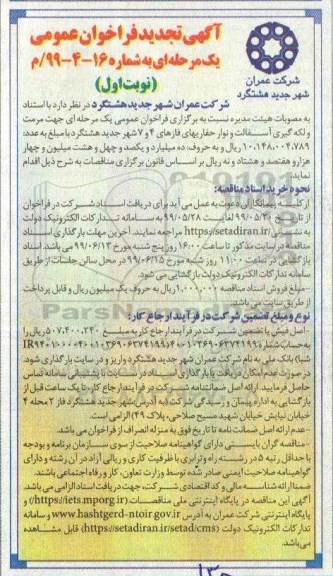 آگهی تجدید فراخوان عمومی
یک مرحله‌ای به شماره ۱۶-۴-۹۹/م
(نوبت اول)
شرکت عمران
شهر جدید هشتگرد
شرکت عمران شهر جدید هشتگرد در نظر دارد با استناد
به مصوبات هیئت مدیره نسبت به برگزاری فراخوان عمومی یک مرحله ای جهت مرمت
و لکه گیری آسفالت و نوار حفاریهای فازهای ۴ و ۷ شهر جدید هشتگرد با مبلغ به عدد:
۱۰،۱۴۸،۰۰۴،۷۸۹ ریال و به حروف: ده میلیارد و یکصد و چهل و هشت میلیون و چهار
هزار و هفتصد و هشتاد و نه ریال بر اساس قانون برگزاری مناقصات به شرح ذیل اقدام
نمایند:
نحوه خرید اسناد مناقصه:
از کلیه پیمانکاران دعوت به عمل می آید برای دریافت اسناد شرکت در فراخوان
از تاریخ ۹۹/۰۵/۲۰ لغایت ۹۹/۰۵/۲۸ به سامانه تدارکات الکترونیک دولت
به نشانی https://setadiran.ir مراجعه نمایند. آخرین مهلت بارگذاری اسناد
مناقصه در سایت مذکور تا ساعت ۱۶:۰۰ روز پنج شنبه مورخ ۹۹/۰۶/۱۳ می باشد. اسناد
بازگشایی در ساعت ۱۱:۰۰ روز شنبه مورخ ۹۹/۰۶/۱۵ در محل سالن جلسات از طریق
سامانه تدارکات الکترونیک دولت بازگشایی می شود.
- مبلغ فروش اسناد مناقصه ۱،۰۰۰،۰۰۰ ریال به حروف یک میلیون ریال و قابل پرداخت
از طریق سایت می باشد.
نوع و مبلغ تضمین شرکت در فرآیند ارجاع کار:
- اصل فیش یا تضمین شرکت در فرآیند ارجاع کار به مبلغ ۵۰۷،۴۰۰،۲۴۰ ریال را
به حساب شماره
بانک ملی به نام شرکت عمران شهر جدید هشتگرد واریز و در سایت بارگذاری شود.
در صورت عدم امکان دریافت یا بارگذاری اسناد در سایت با پشتیبانی سامانه تماس
حاصل فرمایید. ارائه اصل ضمانتنامه شرکت در فرآیند ارجاع کار، تا یک ساعت قبل از
بازگشایی به اداره پیمان و رسیدگی شرکت (به آدرس: شهر جدید هشتگرد فاز ۲ محله ۴
خیابان نیایش خیابان شهید مسیح صلاحی، پلاک ۴۹) الزامی است.
- عدم ارائه اصل ضمانت نامه تا تاریخ فوق به منزله انصراف از فراخوان می باشد.
- مناقصه گران بایستی دارای گواهینامه صلاحیت از سوی سازمان برنامه و بودجه
با حداقل رتبه ۵ در رشته راه و ترابری با ظرفیت کاری و ریالی آزاد در آن رشته و دارای
گواهینامه صلاحیت ایمنی صادر شده توسط وزارت تعاون، کار و رفاه اجتماعی باشند.
ضمنا ارائه شناسه ملی و کد اقتصادی شرکت، جهت دریافت اسناد الزامی می باشد.
آگهی این مناقصه در پایگاه اینترنتی ملی مناقصات (https://iets.mporg.ir) و
پایگاه اینترنتی شرکت عمران به آدرس www.hashtgerd-ntoir.gov.ir و سامانه
تدارکات الکترونیک دولت (https://setadiran.ir/setad/cms) قابل مشاهده
می باشد.